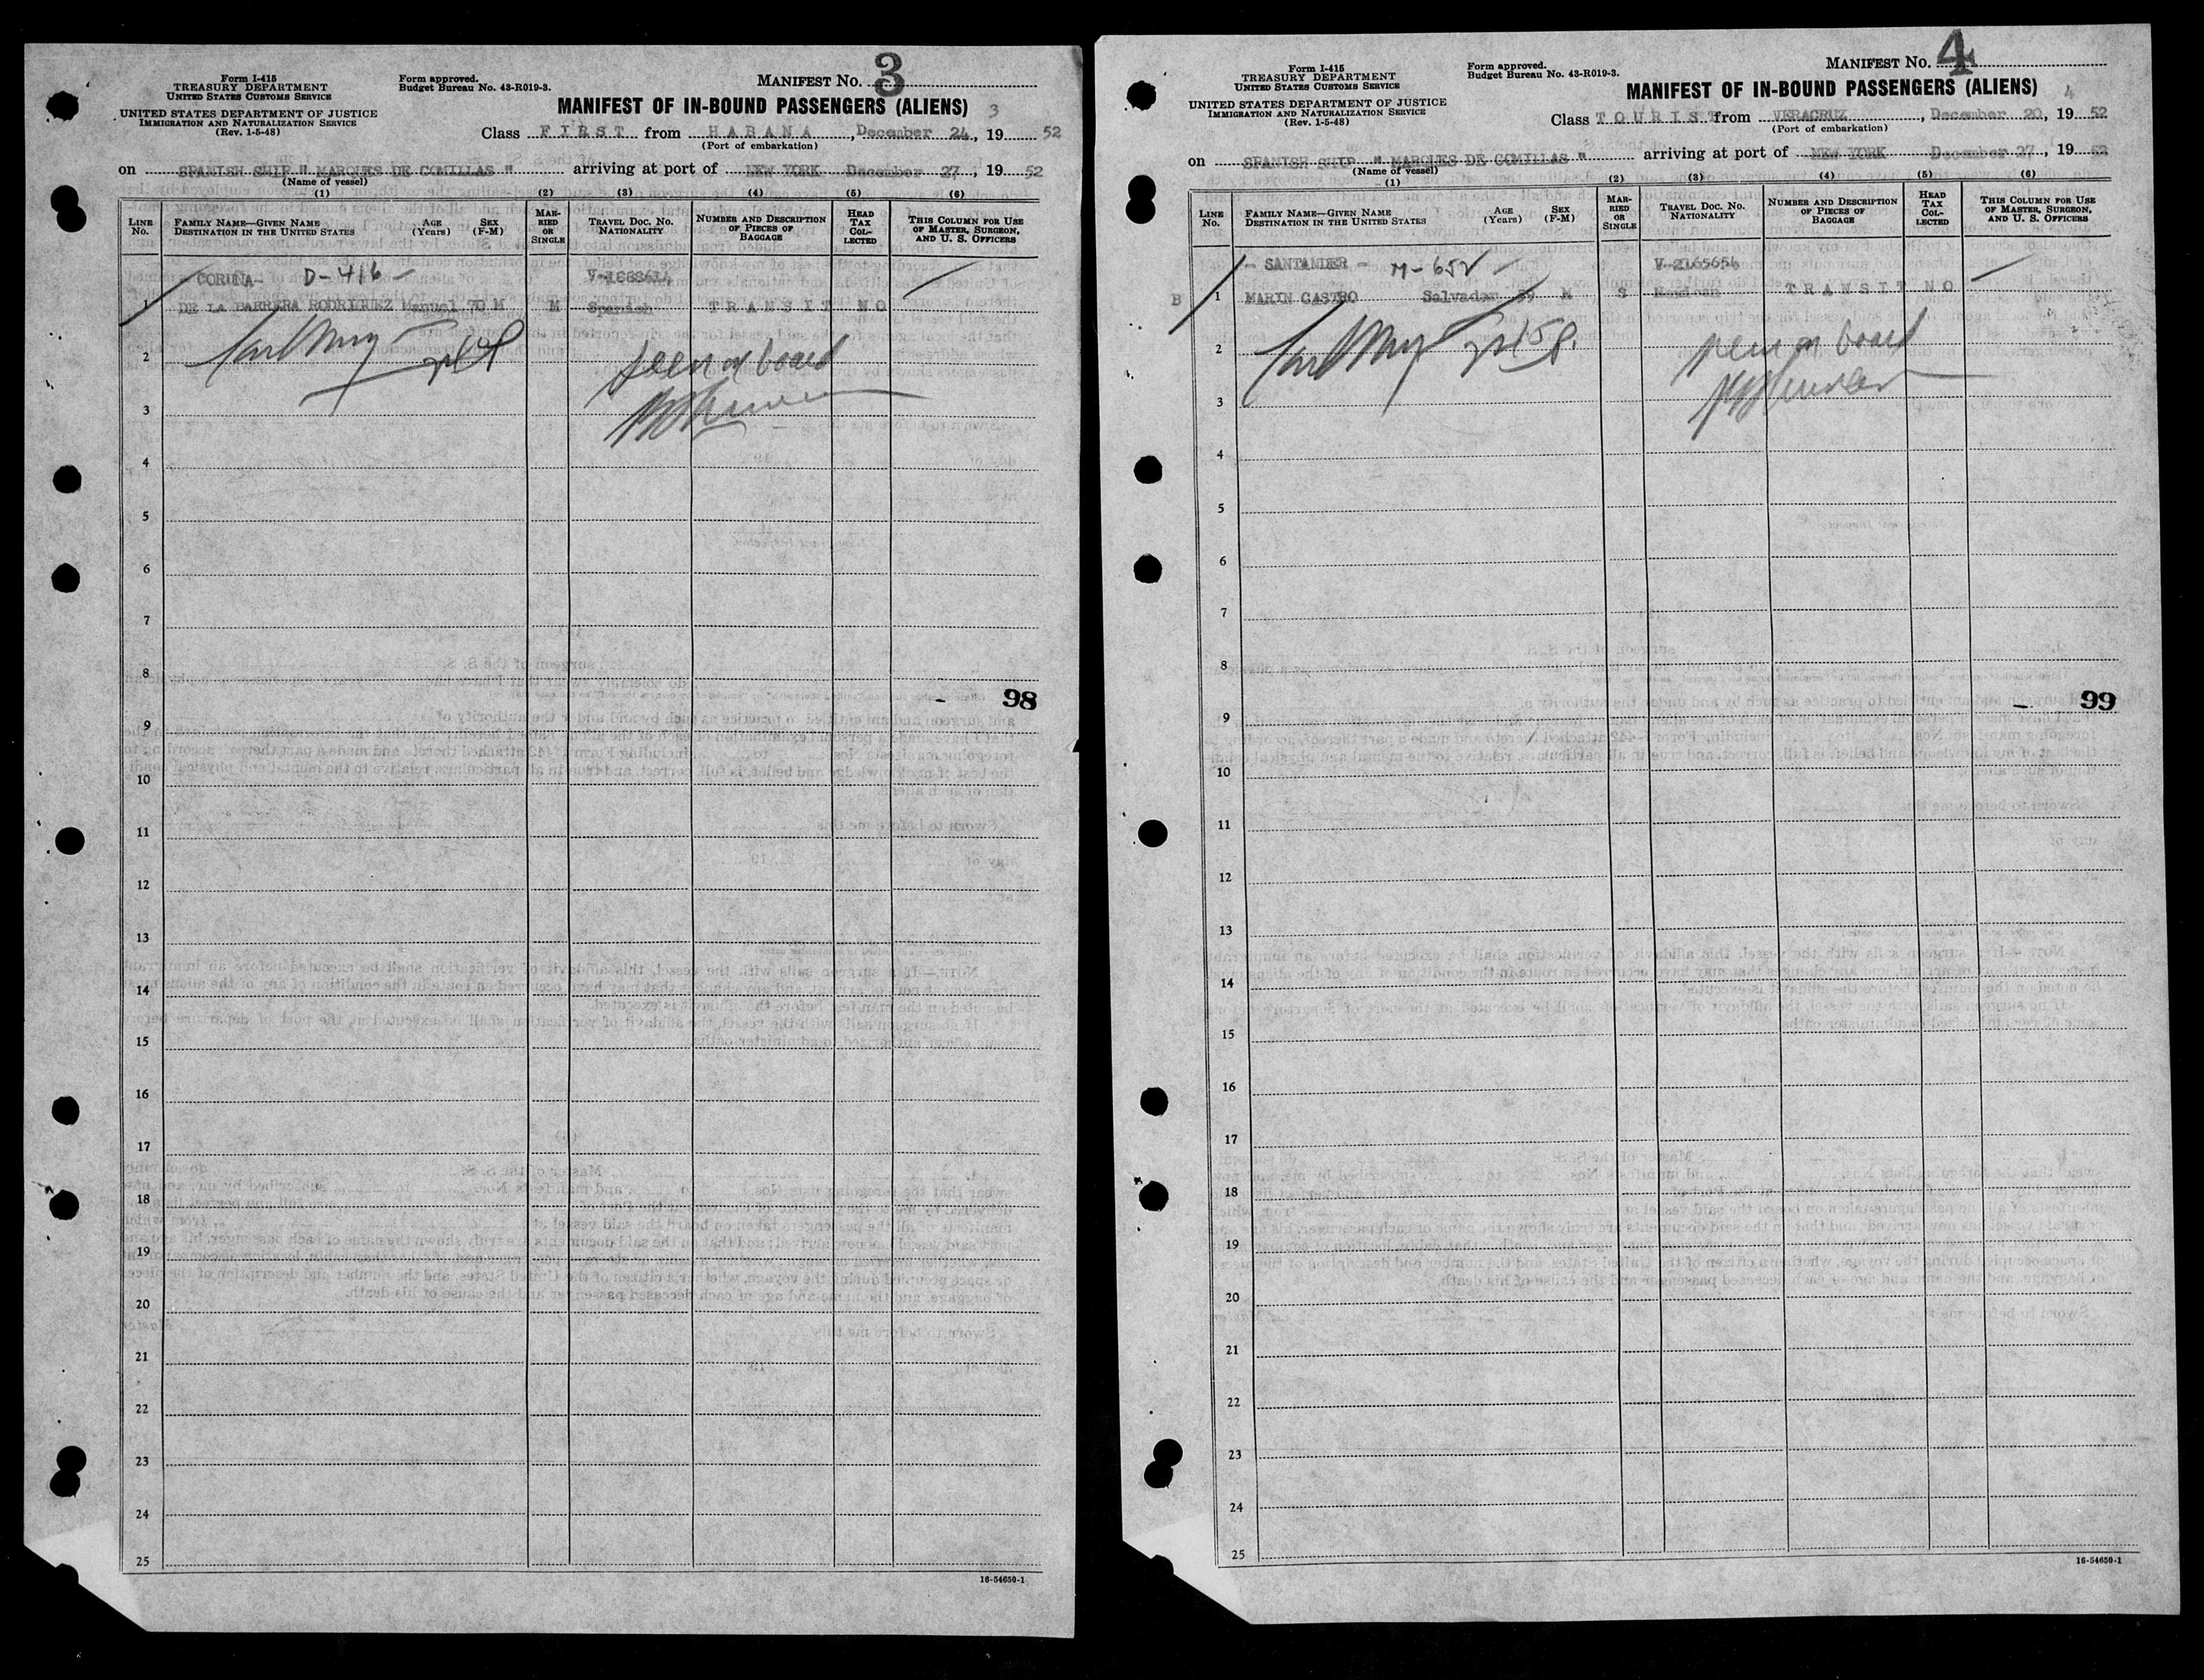 Form I-415
TREASURY DEPARTMENT
UNITED STATES CUSTOMS SERVICE
UNITED STATES DEPARTMENT OF JUSTICE
IMMIGRATION AND NATURALIZATION SERVICE
(Rev. 1-5-48)
Form approved.
Budget Bureau No. 43-R019-3.
MANIFEST No. 3
MANIFEST OF IN-BOUND PASSENGERS (ALIENS) 3
Class FIRST from HABANA, December 24, 1952
(Port of embarkation)
on SPANISH SHIP "MARQUES DE COMILLAS" arriving at port of NEW YORK December 27, 1952
(Name of vessel)
(1) (2) (3) (4) (5) (6)
LINE No.
FAMILY NAME—GIVEN NAME
DESTINATION IN THE UNITED STATES
AGE (Years)
SEX (F-M)
MARRIED OR SINGLE
TRAVEL DOC. NO.
NATIONALITY
NUMBER AND DESCRIPTION OF PIECES OF BAGGAGE
HEAD TAX COLLECTED
THIS COLUMN FOR USE OF MASTER, SURGEON, AND U. S. OFFICERS
CORUÑA- D-416 -
V-1883614
1 DE LA BARRERA RODRIGUEZ Manuel 70 M M Spanish TRANSIT NO
2 seen on board
3
4
5
6
7
8
98
9
10
11
12
13
14
15
16
17
18
19
20
21
22
23
24
25
16-54650-1
Form I-415
TREASURY DEPARTMENT
UNITED STATES CUSTOMS SERVICE
UNITED STATES DEPARTMENT OF JUSTICE
IMMIGRATION AND NATURALIZATION SERVICE
(Rev. 1-5-48)
Form approved.
Budget Bureau No. 43-R019-3.
MANIFEST No. 4
MANIFEST OF IN-BOUND PASSENGERS (ALIENS) 4
Class TOURIST from VERACRUZ, December 20, 1952
(Port of embarkation)
on SPANISH SHIP "MARQUES DE COMILLAS" arriving at port of NEW YORK December 27, 1952
(Name of vessel)
(1) (2) (3) (4) (5) (6)
LINE No.
FAMILY NAME—GIVEN NAME
DESTINATION IN THE UNITED STATES
AGE (Years)
SEX (F-M)
MARRIED OR SINGLE
TRAVEL DOC. NO.
NATIONALITY
NUMBER AND DESCRIPTION OF PIECES OF BAGGAGE
HEAD TAX COLLECTED
THIS COLUMN FOR USE OF MASTER, SURGEON, AND U. S. OFFICERS
- SANTANDER - M-652 -
V-2165654
B 1 MARIN CASTRO Salvador M S Mexican TRANSIT NO
2 seen on board
3
4
5
6
7
8
99
9
10
11
12
13
14
15
16
17
18
19
20
21
22
23
24
25
16-54650-1